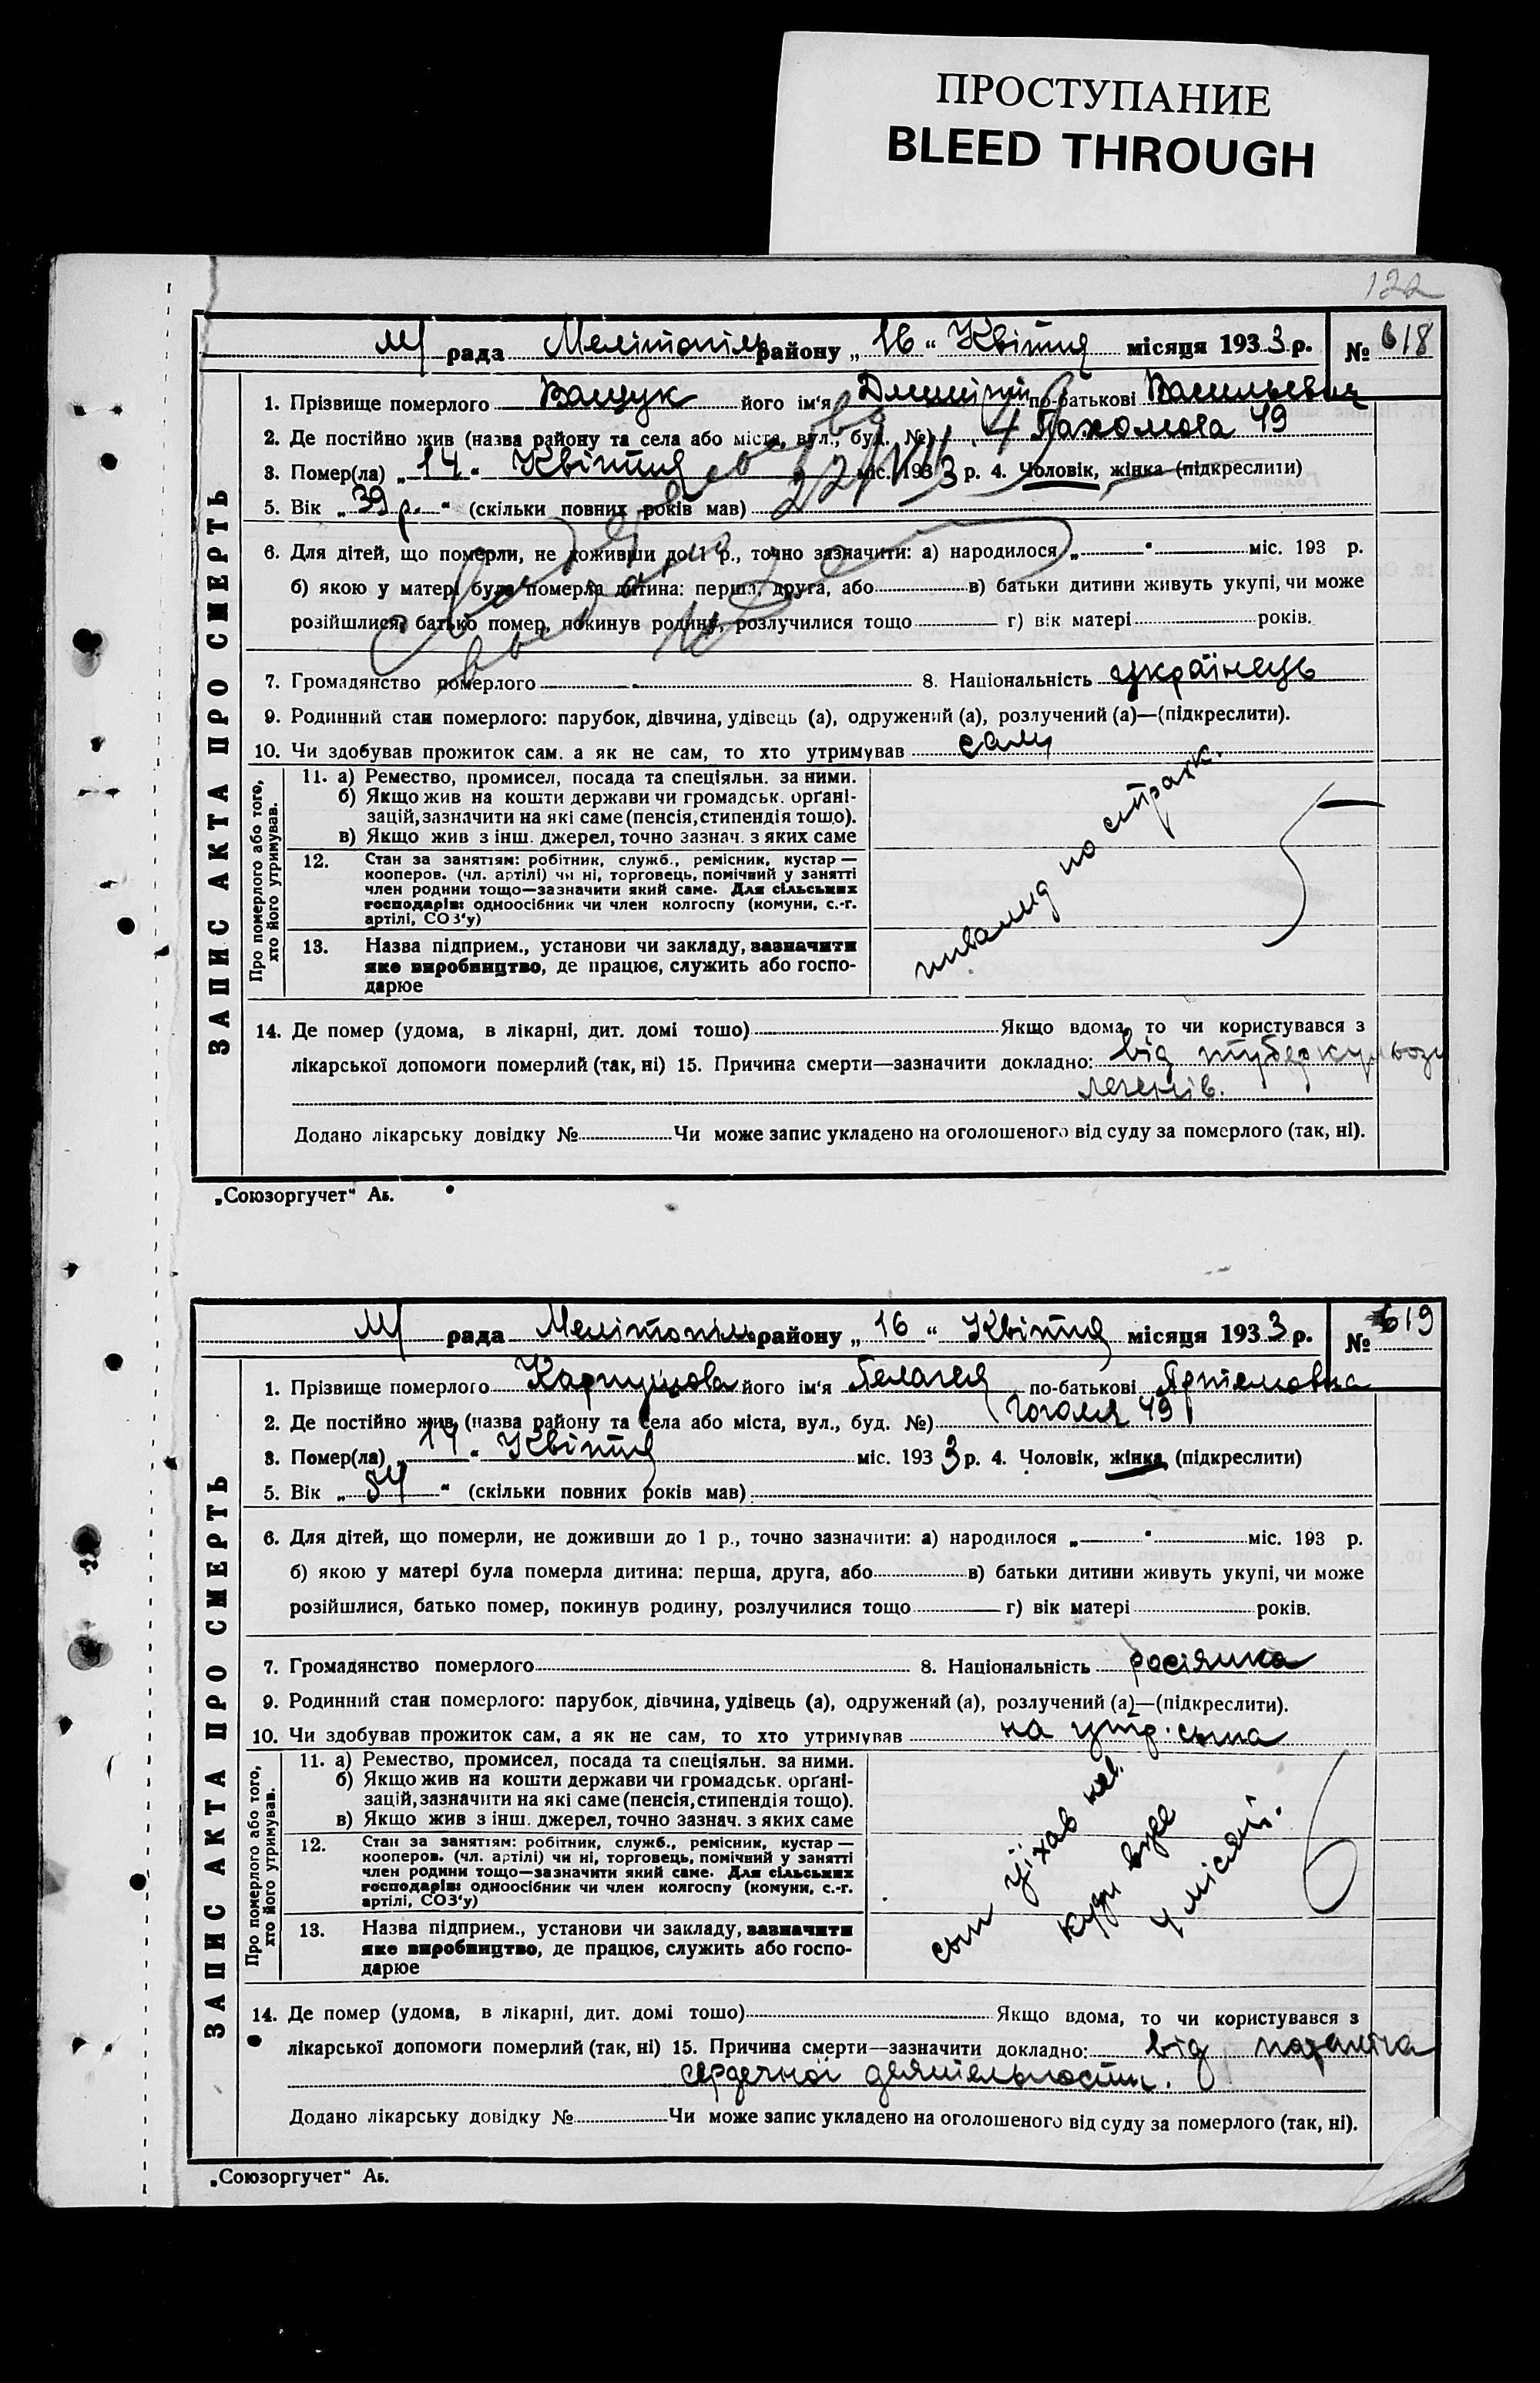 ПРОСТУПАНИЕ
BLEED THROUGH
122
М рада Мелітопіль району „16“ Квітня місяця 1933 р. № 618
ЗАПИС АКТА ПРО СМЕРТЬ
1. Прізвище померлого Ващук його ім'я Дмитрій по-батькові Васильевич
2. Де постійно жив (назва району та села або міста, вул., буд. №) Пахомова 49
3. Помер(ла) „14“ Квітня міс. 1933 р. 4. Чоловік, жінка (підкреслити)
5. Вік „39 р.“ (скільки повних років мав)
6. Для дітей, що померли, не доживши до 1 р., точно зазначити: а) народилося „ “ міс. 193 р.
б) якою у матері була померла дитина: перша, друга, або в) батьки дитини живуть укупі, чи може
розійшлися, батько помер, покинув родину, розлучилися тощо г) вік матері років.
7. Громадянство померлого 8. Національність українець
9. Родинний стан померлого: парубок, дівчина, удівець (а), одружений (а), розлучений (а)—(підкреслити).
10. Чи здобував прожиток сам, а як не сам, то хто утримував сам
Про померлого або того, хто його утримував.
11. а) Ремество, промисел, посада та спеціяльн. за ними.
б) Якщо жив на кошти держави чи громадськ. орґані-
зацій, зазначити на які саме (пенсія, стипендія тощо).
в) Якщо жив з інш. джерел, точно зазнач. з яких саме
12. Стан за заняттям: робітник, служб., ремісник, кустар —
кооперов. (чл. артілі) чи ні, торговець, помічний у занятті
член родини тощо—зазначити який саме. Для сільських
господарів: одноосібник чи член колгоспу (комуни, с.-г.
артілі, СОЗ'у)
13. Назва підприєм., установи чи закладу, зазначити
яке виробництво, де працює, служить або госпо-
дарює
инвалид по страж.
5
14. Де помер (удома, в лікарні, дит. домі тощо) Якщо вдома, то чи користувався з
лікарської допомоги померлий (так, ні) 15. Причина смерти—зазначити докладно: від туберкульозу
легенів.
Додано лікарську довідку № Чи може запис укладено на оголошеного від суду за померлого (так, ні).
„Союзоргучет“ Аз.
М рада Мелітопіль району „16“ Квітня місяця 1933 р. № 619
ЗАПИС АКТА ПРО СМЕРТЬ
1. Прізвище померлого його ім'я Пелагея по-батькові Артемовна
2. Де постійно жив (назва району та села або міста, вул., буд. №) Гоголя 49
3. Помер(ла) „14“ Квітня міс. 1933 р. 4. Чоловік, жінка (підкреслити)
5. Вік „54“ (скільки повних років мав)
6. Для дітей, що померли, не доживши до 1 р., точно зазначити: а) народилося „ “ міс. 193 р.
б) якою у матері була померла дитина: перша, друга, або в) батьки дитини живуть укупі, чи може
розійшлися, батько помер, покинув родину, розлучилися тощо г) вік матері років.
7. Громадянство померлого 8. Національність росіянка
9. Родинний стан померлого: парубок, дівчина, удівець (а), одружений (а), розлучений (а)—(підкреслити).
10. Чи здобував прожиток сам, а як не сам, то хто утримував на утр. сына
Про померлого або того, хто його утримував.
11. а) Ремество, промисел, посада та спеціяльн. за ними.
б) Якщо жив на кошти держави чи громадськ. орґані-
зацій, зазначити на які саме (пенсія, стипендія тощо).
в) Якщо жив з інш. джерел, точно зазнач. з яких саме
12. Стан за заняттям: робітник, служб., ремісник, кустар —
кооперов. (чл. артілі) чи ні, торговець, помічний у занятті
член родини тощо—зазначити який саме. Для сільських
господарів: одноосібник чи член колгоспу (комуни, с.-г.
артілі, СОЗ'у)
13. Назва підприєм., установи чи закладу, зазначити
яке виробництво, де працює, служить або госпо-
дарює
сын уїхав нев.
куди вуже
4 місяці.
6
14. Де помер (удома, в лікарні, дит. домі тощо) Якщо вдома, то чи користувався з
лікарської допомоги померлий (так, ні) 15. Причина смерти—зазначити докладно: від параліча
сердечної деятельности.
Додано лікарську довідку № Чи може запис укладено на оголошеного від суду за померлого (так, ні).
„Союзоргучет“ Аз.